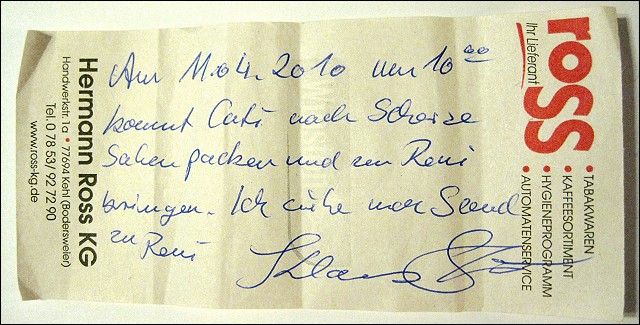 ross
Ihr Lieferant
• TABAKWAREN
• KAFFEESORTIMENT
• HYGIENEPROGRAMM
• AUTOMATENSERVICE
Am 11.04.2010 um 10⁰⁰
kommt Cati nach
Sahen packen und zu Reni
bringen. Ich
zu Reni
Hermann Ross KG
Handwerkstr. 1a • 77694 Kehl (Bodersweier)
Tel. 0 78 53/ 92 72 90
www.ross-kg.de